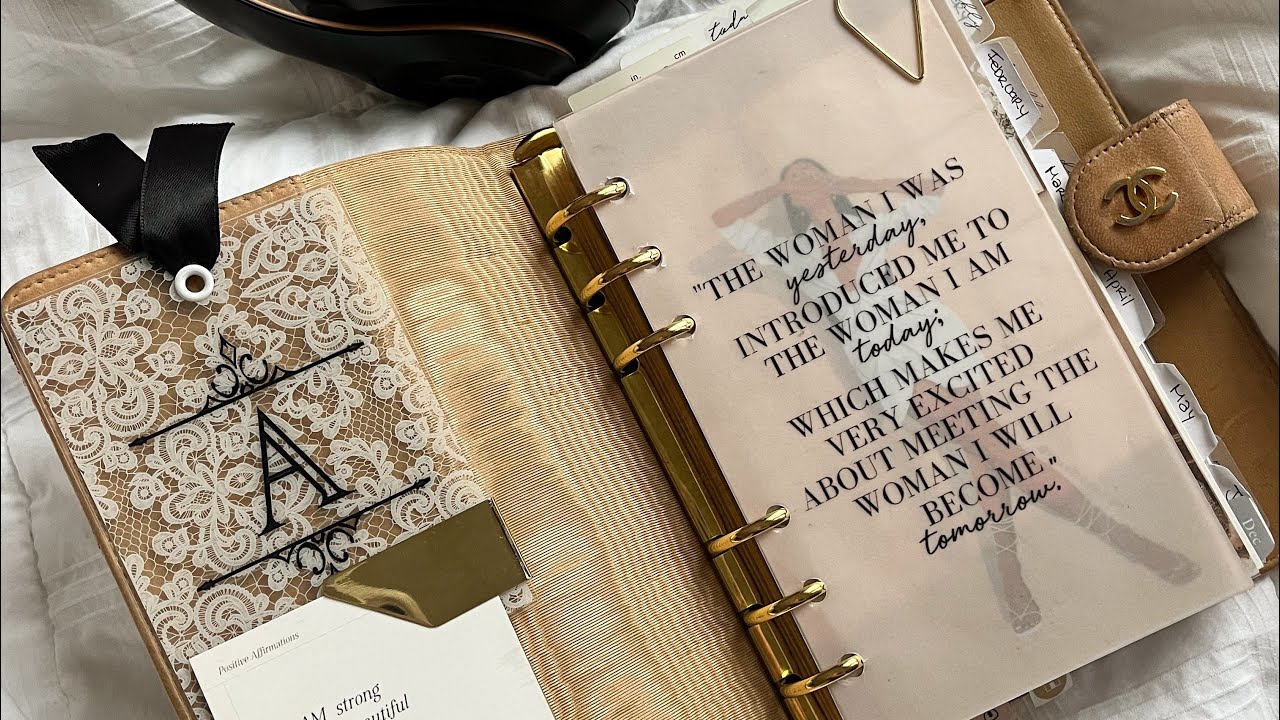 A
Positive Affirmations
AM strong
in. cm
"THE WOMAN I WAS
yesterday,
INTRODUCED ME TO
THE WOMAN I AM
today;
WHICH MAKES ME
VERY EXCITED
ABOUT MEETING THE
WOMAN I WILL
BECOME"
tomorrow.
February
Mar
April
May
J
Dec